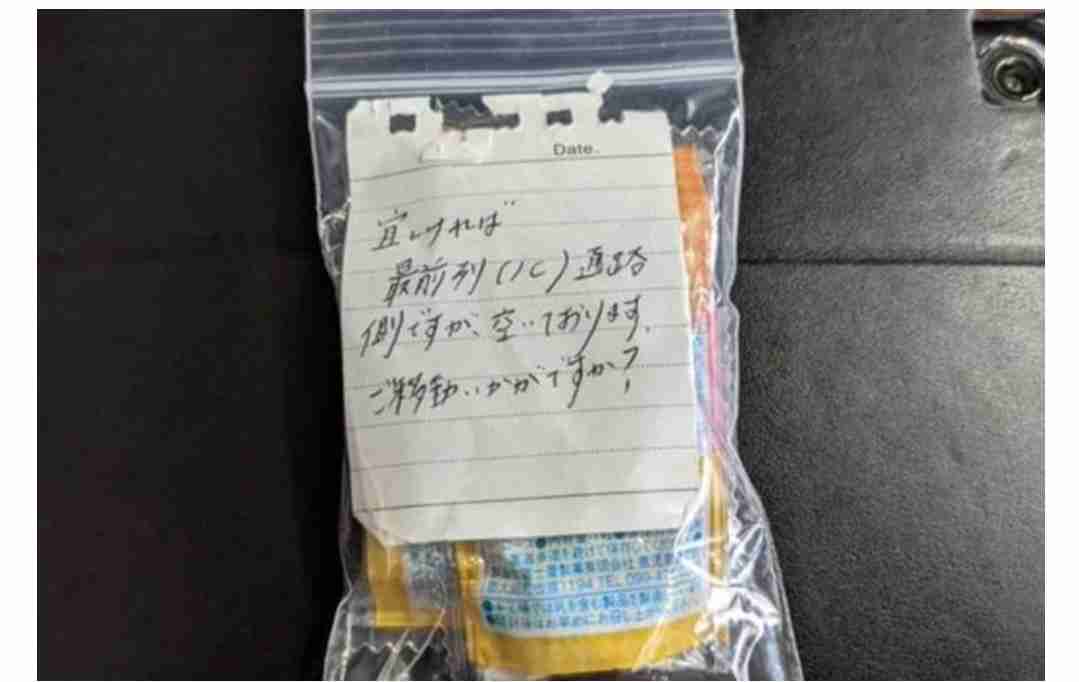 Date.
宜しければ
最前列(1C)通路
側ですが、空いております。
ご移動いかがですか?
1194 TEL 099-